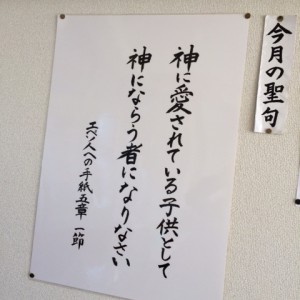 今月の聖句
神に愛されている子供として
神にならう者になりなさい
エペソ人への手紙五章一節